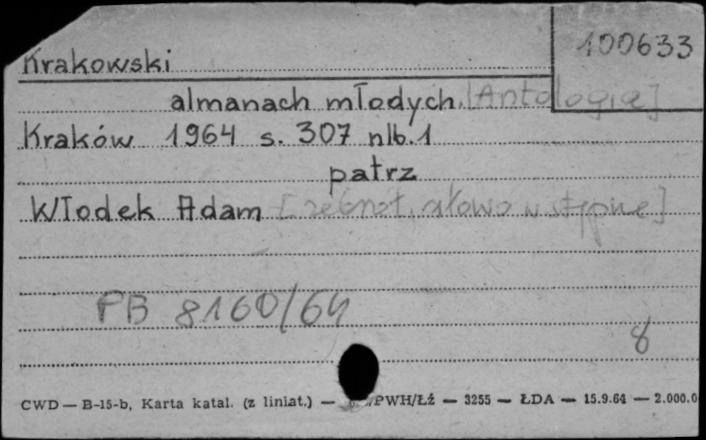 100633
Krakowski
almanach młodych. [Antologia]
Kraków 1964 s. 307 nlb. 1
patrz
Włodek Adam [zebrał, słowo wstępne]
PB 8160/64
8
CWD — B-15-b, Karta katal. (z liniat.) — /PWH/Łź — 3255 — ŁDA — 15.9.64 — 2.000.0